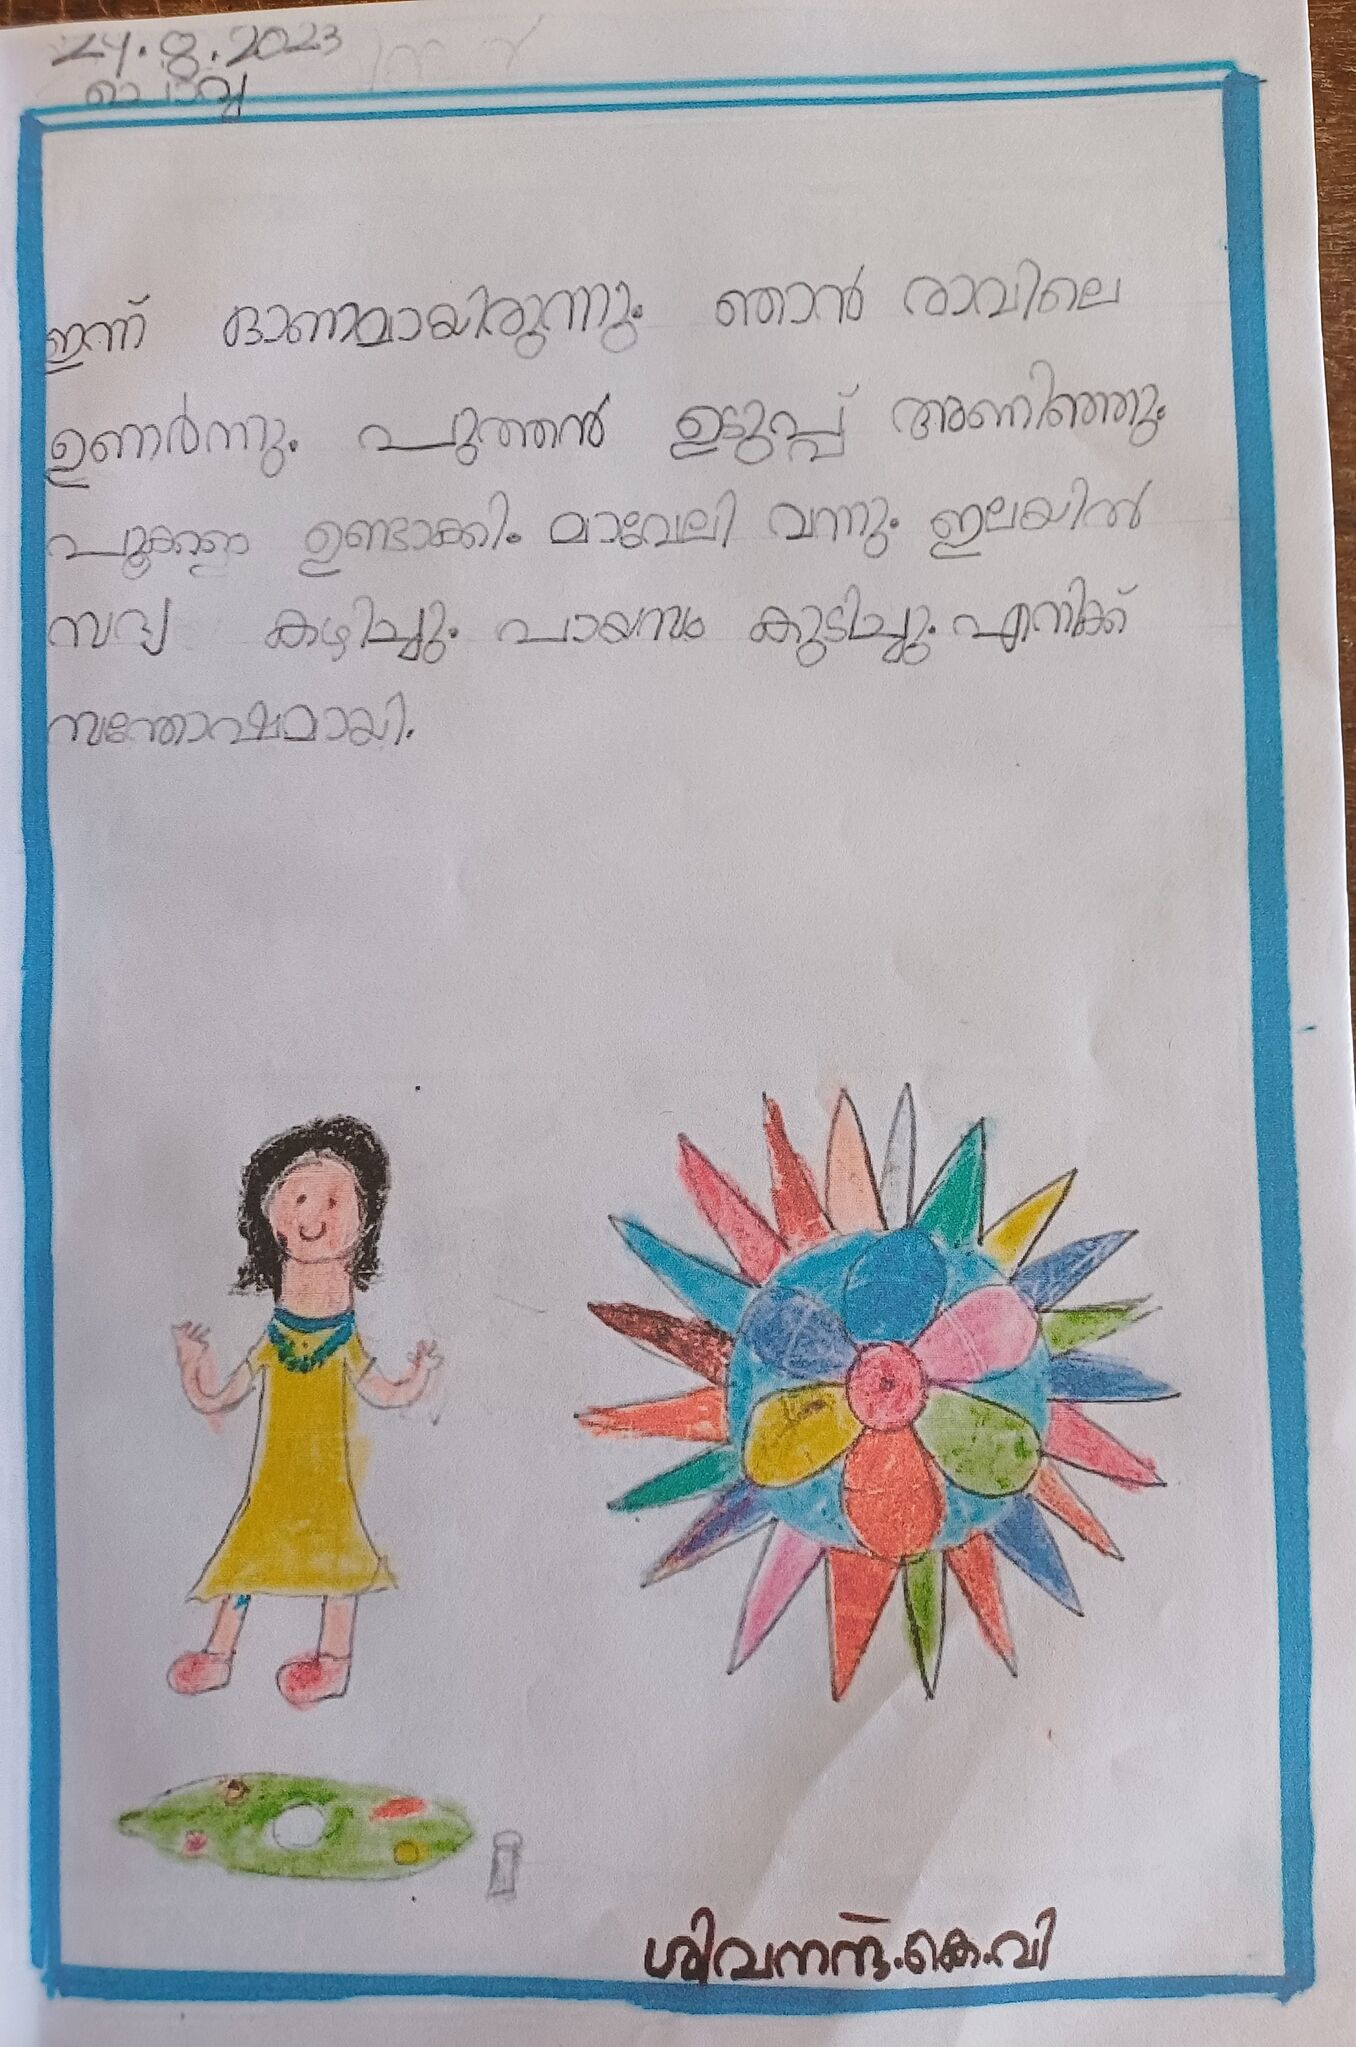 24.8.2023
ഇന്ന് ഓണമായിരുന്നു. ഞാൻ രാവിലെ
ഉണർന്നു. പുത്തൻ ഉടുപ്പ് അണിഞ്ഞു.
പൂക്കളം ഉണ്ടാക്കി. മാവേലി വന്നു. ഇലയിൽ
സദ്യ കഴിച്ചു. പായസം കുടിച്ചു. എനിക്ക്
സന്തോഷമായി.
ശിവനന്ദ്.കെ.വി